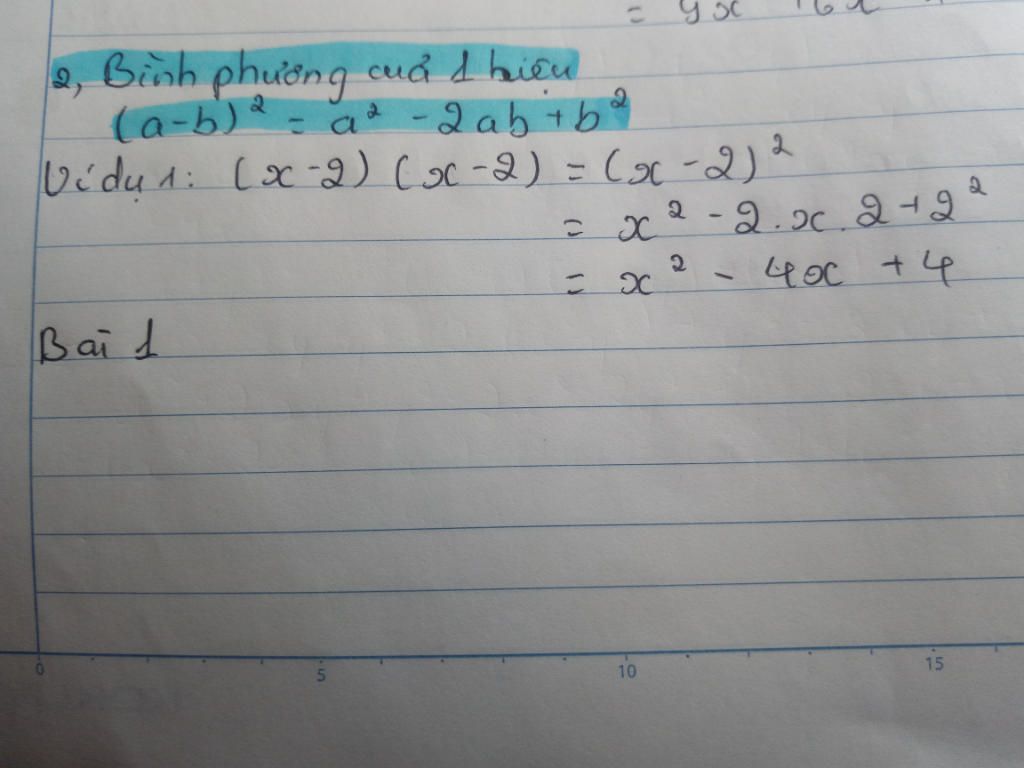 2, Bình phương cuả 1 hiệu
(a-b)² = a² - 2ab + b²
Ví dụ 1: (x-2)(x-2) = (x-2)²
= x² - 2.x.2+2²
= x² - 4x + 4
Bài 1
0 5 10 15